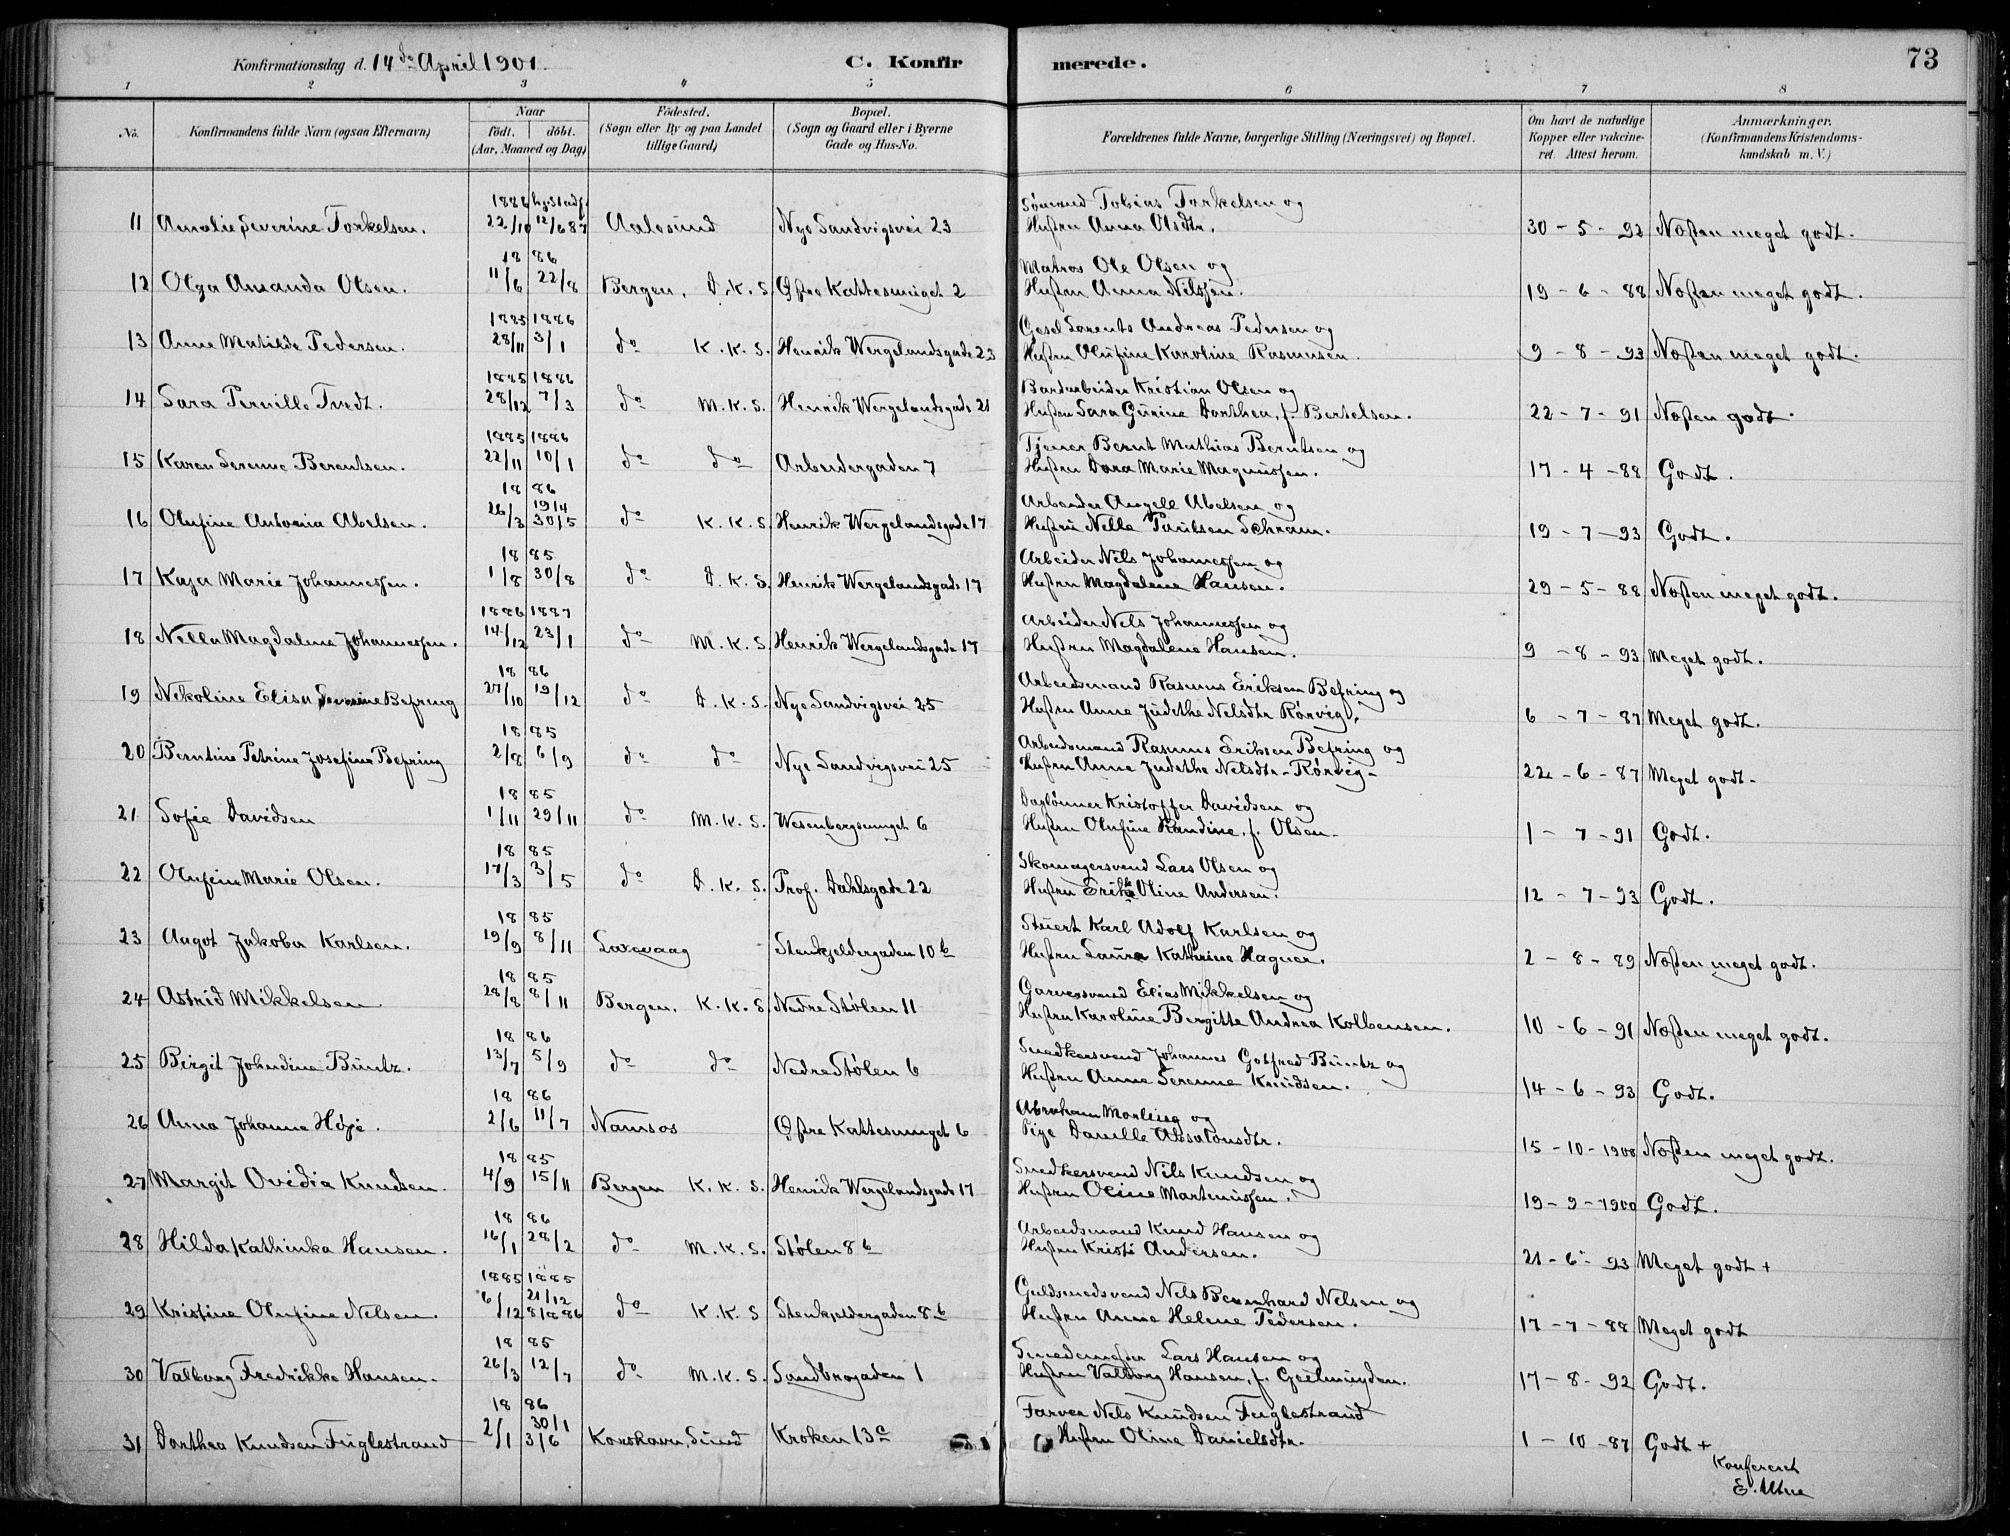 Konfirmationsdag d. 14de April 1901. C. Konfir merede. 73
1 2 3 4 5 6 7 8
No. Konfirmandens fulde Navn (ogsaa Efternavn) Naar födt. döbt. (Aar, Maaned og Dag) Födested. (Sogn eller By og paa Landet tillige Gaard) Bopæl. (Sogn og Gaard eller i Byerne Gade og Hus-No. Forældrenes fulde Navne, borgerlige Stilling (Næringsvei) og Bopæl. Om havt de naturlige Kopper eller vakcineret. Attest herom. Anmærkninger. (Konfirmandens Kristendomskundskab m. V.)
1886
Sömand Tobias Torkelsen og
11 Amalie Severine Torkelsen. 22/10 12/6 87 Aalesund Nye Sandvigsvei 23 Hustru Anna Olsdtr. 30-5-92 Næsten meget godt.
1886
Matros Ole Olsen og
12 Olga Amanda Olsen. 11/6 22/8 Bergen, D.K.S. Östre Kattesmuget 2 Hustru Anna Nilssen. 19-6-88 Næsten meget godt.
1885 1886
Gesel Lorents Andreas Pedersen og
13 Anne Matilde Pedersen. 28/11 3/1 do K.K.S. Henrik Wergelandsgade 23 Hustru Olufine Karoline Rasmusen. 9-8-93 Næsten meget godt.
1885 1886
Kristian Olsen og
14 Sara Pernille Tvedt. 28/12 7/3 do M.K.S. Henrik Wergelandsgade 21 Hustru Sara Gurine Dorthea, f. Bertelsen. 22-7-91 Næsten godt.
1885 1886
Tjener Bernt Mathias Berntsen og
15 Karen Serenne Berentsen. 22/11 10/1 do do Arbeidergaden 7 Hustru Dora Marie Magnussen. 17-4-88 Godt.
1886
Arbeider Angell Abelsen og
16 Olufine Antonia Abelsen. 26/3 19/4 30/5 do K.K.S. Henrik Wergelandsgade 17 Hustru Nella Paulsen Schram. 19-7-93 Godt.
1885
Arbeider Nels Johannessen og
17 Kaja Marie Johannessen. 1/8 30/8 do D.K.S. Henrik Wergelandsgade 17 Hustru Magdalene Hansen. 29-5-88 Næsten meget godt.
1886 1887
Arbeider Nels Johannessen og
18 Nella Magdalena Johannessen. 14/12 23/1 do M.K.S. Henrik Wergelandsgade 17 Hustru Magdalene Hansen. 9-8-93 Meget godt.
1886
Arbeidsmand Rasmus Eriksen Befring og
19 Nikoline Elisa Severine Befring 27/10 19/12 do D.K.S. Nye Sandvigsvei 25 Hustru Anne Judethe Nelsdtr Rørvig. 6-7-87 Meget godt.
1885
Arbeidsmand Rasmus Eriksen Befring og
20 Berntine Petrine Josefine Befring 2/8 6/9 do do Nye Sandvigsvei 25 Hustru Anne Judethe Nelsdtr - Rørvig - 22-6-87 Meget godt-
1885
Daglönner Kristoffer Davidsen og
21 Sofie Davidsen 1/11 29/11 do M.K.S. Wesenbergsmuget 6 Hustru Olufine Randine, f. Olsen. 1-7-91 Godt.
1885
Skomagersvend Lars Olsen og
22 Olufine Marie Olsen. 17/3 3/5 do D.K.S. Prof. Dahlsgade 22 Hustru Erikke Oline Andersen. 12-7-93 Godt.
1885
Stuert Karl Adolf Karlsen og
23 Aagot Jakoba Karlsen. 19/9 8/11 Laxevaag Stenkjeldergaden 10 b Hustru Laura Kathrine Hagner. 2-8-89 Næsten meget godt.
1885
Garversvend Elias Mikkelsen og
24 Astrid Mikkelsen 28/8 8/11 Bergen, K.K.S. Nedre Stølen 11 Hustru Karoline Bergitte Andrea Kolbensen. 10-6-91 Næsten meget godt.
1886
Snedkersvend Johannes Gotfred Büntz og
25 Birgit Johndine Büntz. 13/7 5/9 do do Nedre Stølen 6 Hustru Anne Serenne Knudsen. 14-6-93 Godt.
1886
Abraham Morting og
26 Anna Johanne Höje. 2/6 11/7 Namsos Östre Kattesmuget 6 Pige Danille Absalonsdtr. 15-10-1900 Næsten meget godt.
1885
Snedkersvend Nils Knudsen og
27 Margit Ovidia Knudsen. 4/9 15/11 Bergen K.K.S. Henrik Wergelandsgade 17 Hustru Oline Martinussen. 19-9-1900 Godt.
1886
Arbeidsmand Knud Hansen og
28 Hilda Kathinka Hansen. 16/1 28/2 do M.K.S. Stølen 8 b Hustru Kristi Andersen. 21-6-93 Meget godt +
1885 1885
Guldsmedsvend Nels Bernhard Nelsen og
29 Kristine Olufine Nelsen. 6/12 21/12 8/8 86 do K.K.S Stenkjeldergaden 8 b Hustru Anne Helene Pedersen. 17-7-88 Meget godt
1885
Smedemester Lars Hansen og
30 Valborg Fredrikke Hansen. 26/3 12/7 do M.K.S. Sandbrogaden 1 Hustru Valborg Hansen, f. Geelmuyden. 17-8-92 Godt.
1886
Farver Nels Knudsen Fuglestrand
31 Dorthea Knudsen Fuglestrand 2/1 30/1 3/6 Korshavn, Sund Kroken 13 a Hustru Oline Danielsdtr. 1-10-87 Godt +
Konfereret
E.